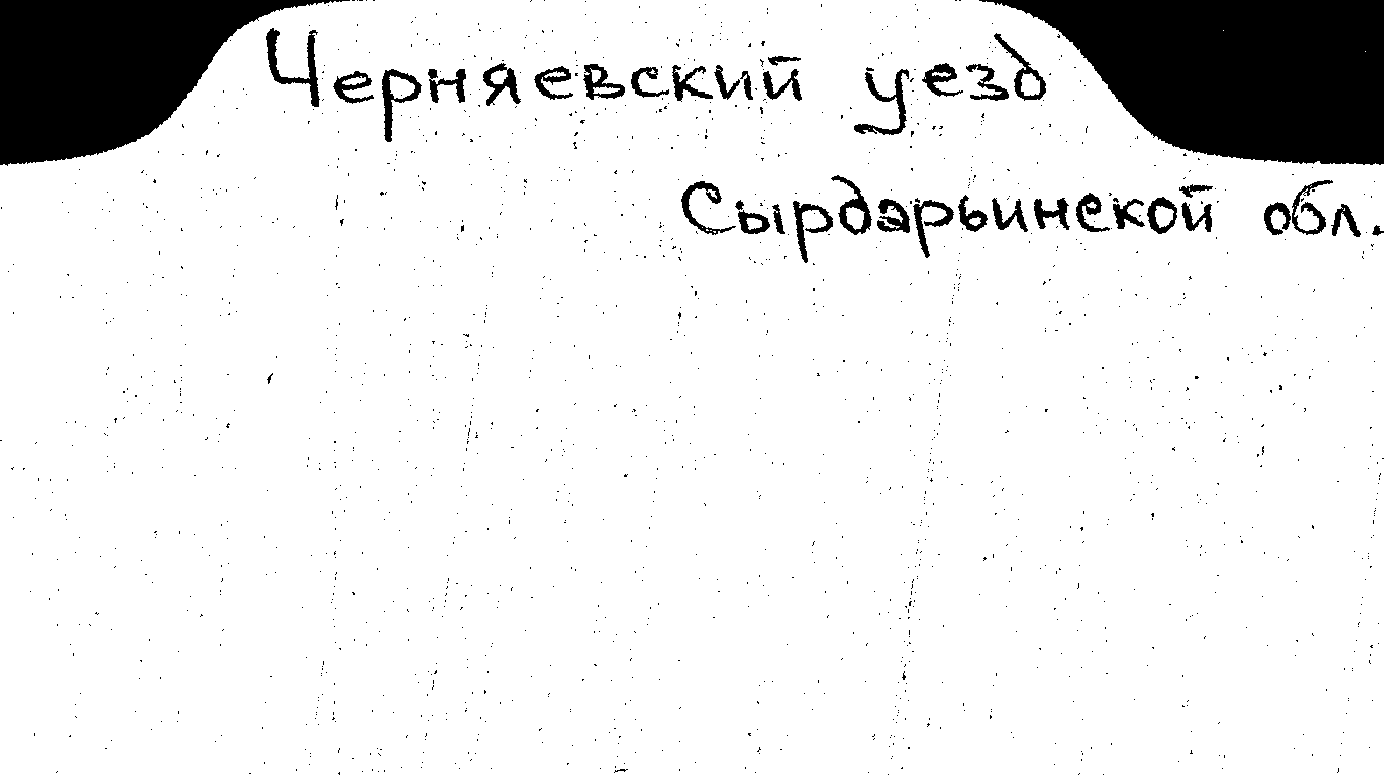 Черняевский уезд
Сырдарьинской обл.